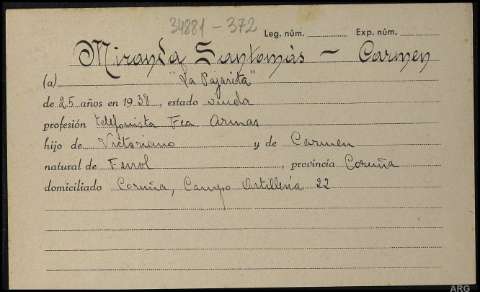 34881 - 372
Leg. núm. Exp. núm.
Miranda Santomás - Carmen
(a) "La Pajarita"
de 25 años en 1938, estado viuda
profesión telefonista Fca Armas
hijo de Victoriano y de Carmen
natural de Ferrol, provincia Coruña
domiciliado Coruña, Campo Artillería 22
ARG